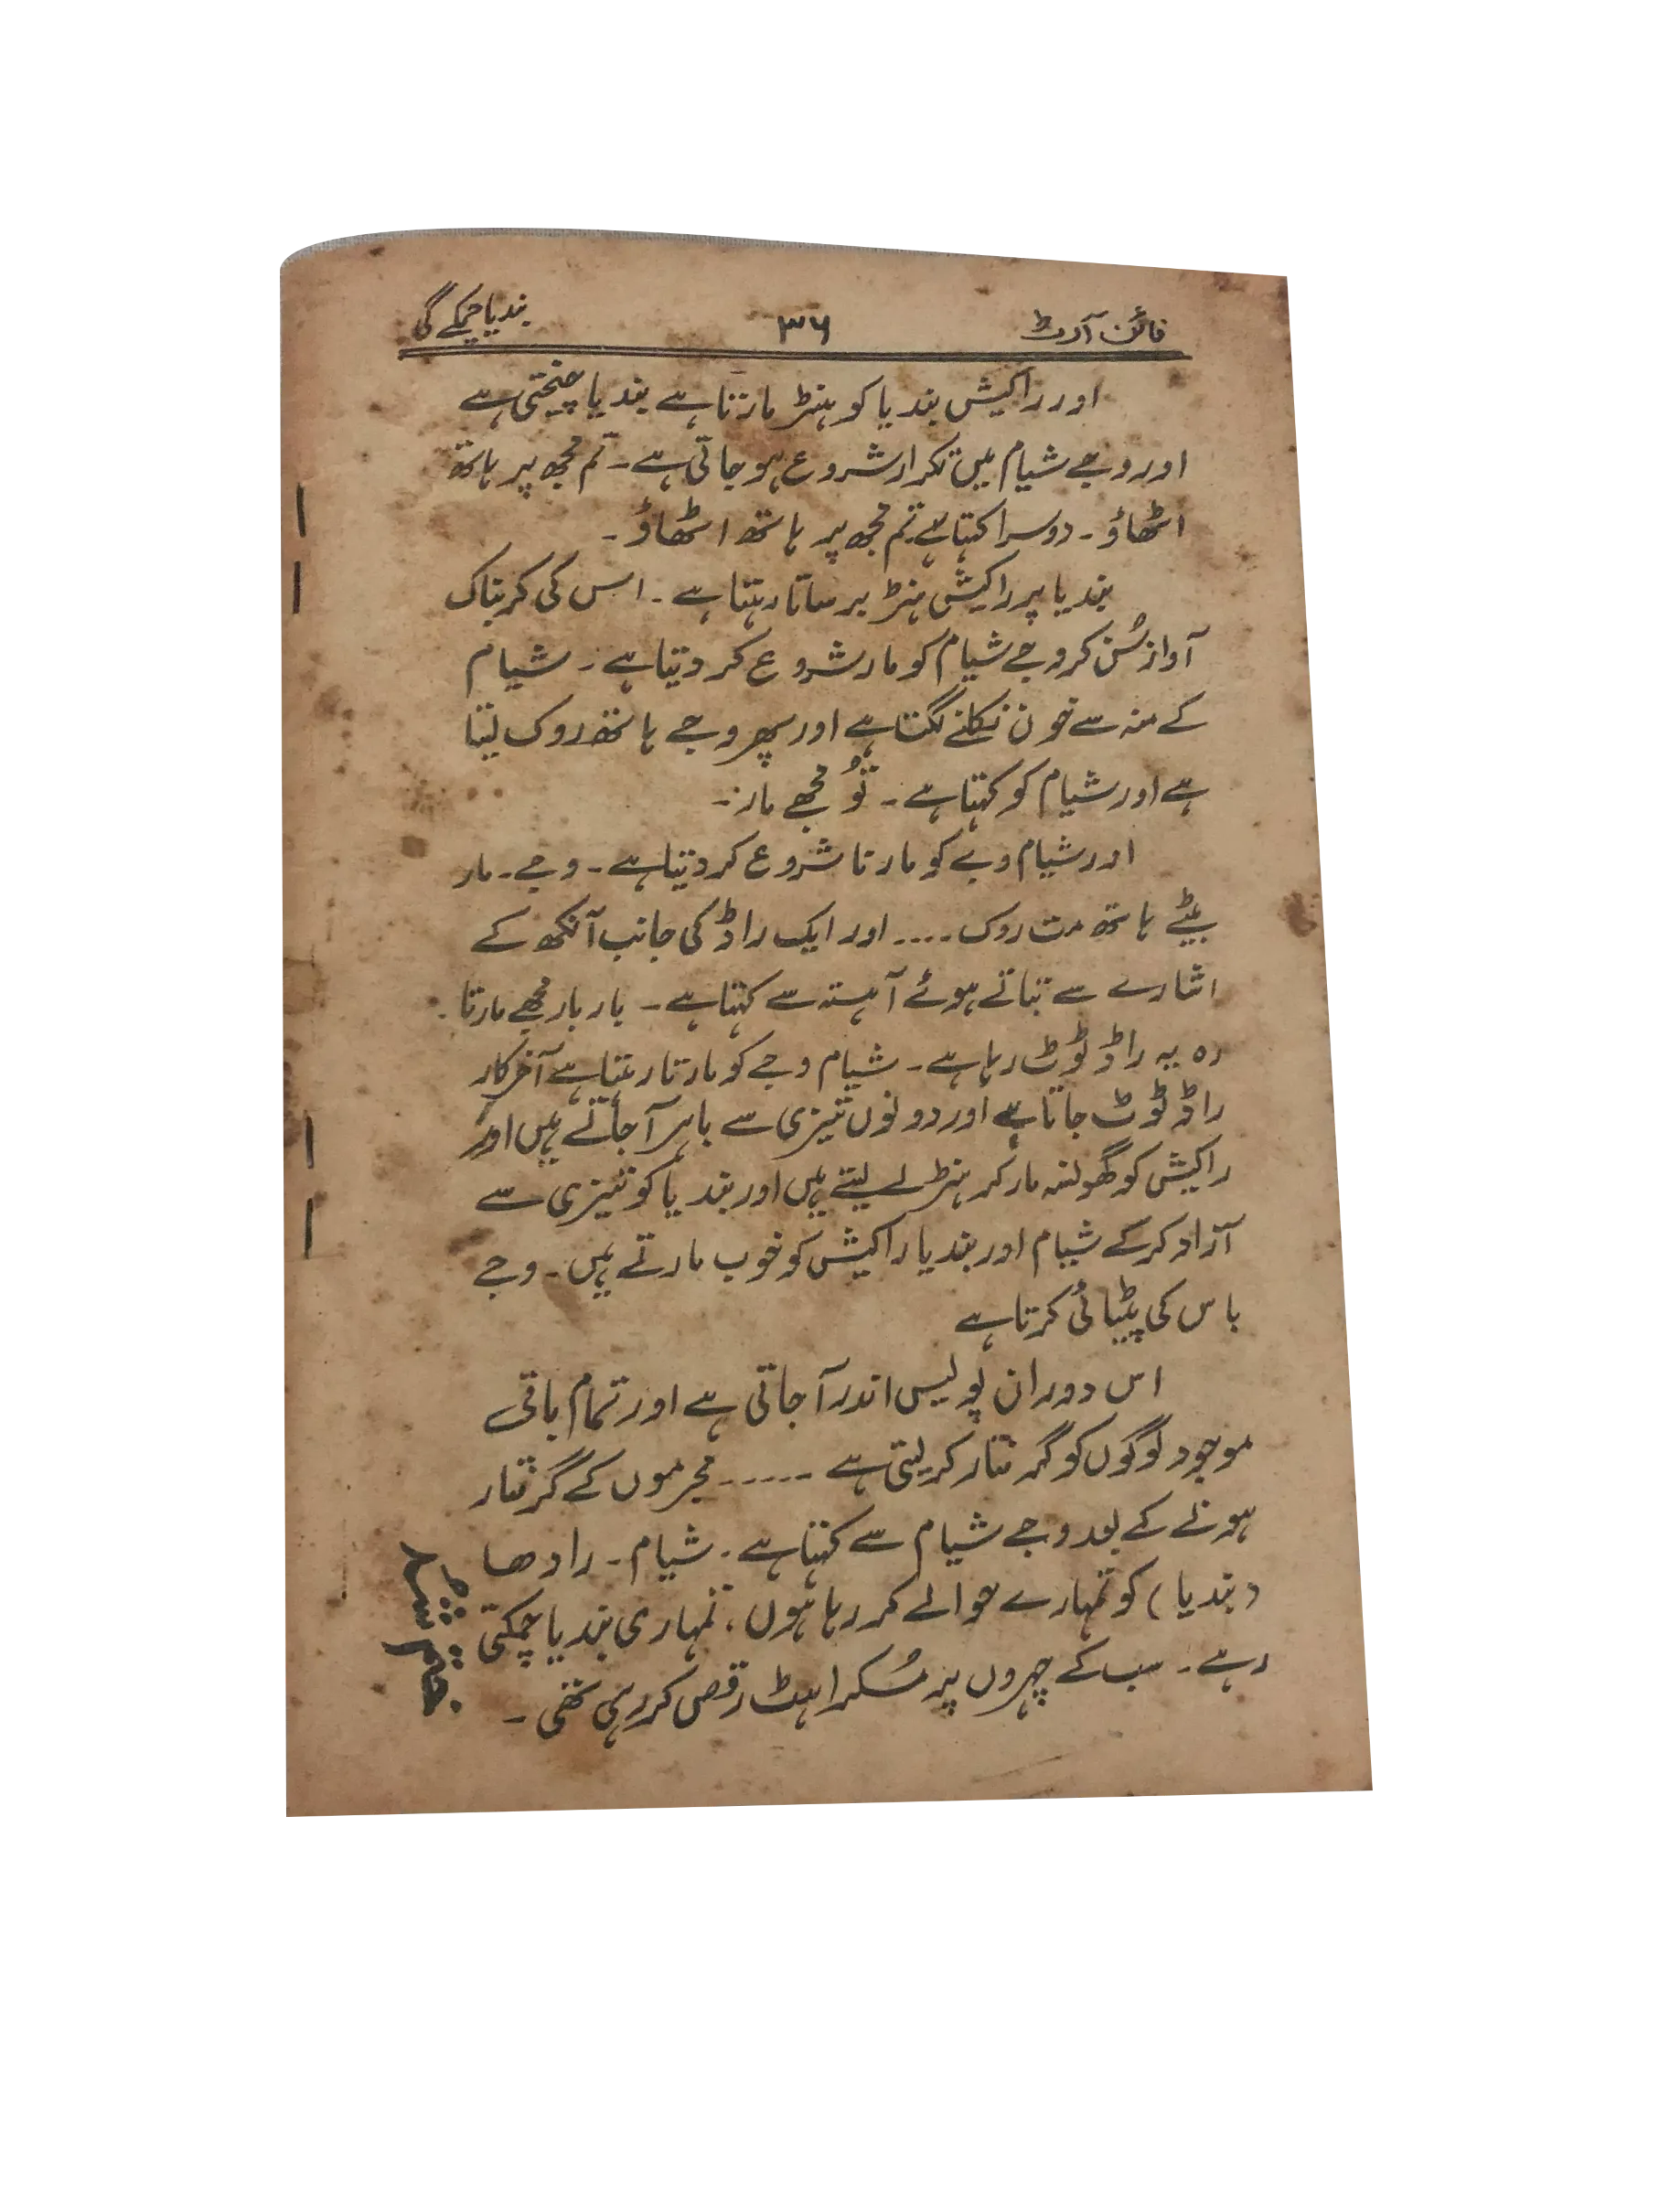 فائن آرٹ ۳۶ بندیا چمکے گی
اور راکیش بندیا کو ہنٹر مارتا ہے بندیا چیختی ہے
اور وجے شیام میں تکرار شروع ہو جاتی ہے ۔ تم مجھ پر ہاتھ
اٹھاؤ ۔ دوسرا کہتا ہے تم مجھ پر ہاتھ اٹھاؤ ۔
بندیا پر راکیش ہنٹر برساتا رہتا ہے ۔ اس کی کربناک
آواز سُن کر وجے شیام کو مار شروع کر دیتا ہے ۔ شیام
کے منہ سے خون نکلنے لگتا ہے اور پھر وجے ہاتھ روک لیتا
ہے اور شیام کو کہتا ہے ۔ تُو مجھے مار ۔
اور شیام وجے کو مارنا شروع کر دیتا ہے ۔ وجے ۔ مار
بیٹے ہاتھ مت روک ۔۔۔۔ اور ایک راڈ کی جانب آنکھ کے
اشارے سے بتاتے ہوئے آہستہ سے کہتا ہے ۔ بار بار مجھے مارتا
رہ یہ راڈ ٹوٹ رہا ہے ۔ شیام وجے کو مارتا رہتا ہے آخر کار
راڈ ٹوٹ جاتا ہے اور دونوں تیزی سے باہر آ جاتے ہیں اور
راکیش کو گھونسہ مار کر ہنٹر لے لیتے ہیں اور بندیا کو تیزی سے
آزاد کر کے شیام اور بندیا راکیش کو خوب مارتے ہیں ۔ وجے
باس کی پٹیائی کرتا ہے
اس دوران پولیس اندر آ جاتی ہے اور تمام باقی
موجود لوگوں کو گرفتار کر لیتی ہے ۔۔۔۔۔ مجرموں کے گرفتار
ہونے کے بعد وجے شیام سے کہتا ہے ۔ شیام ۔ رادھا
(بندیا) کو تمہارے حوالے کر رہا ہوں ، تمہاری بندیا چمکتی
رہے ۔ سب کے چہروں پر مُسکراہٹ رقص کر رہی تھی ۔